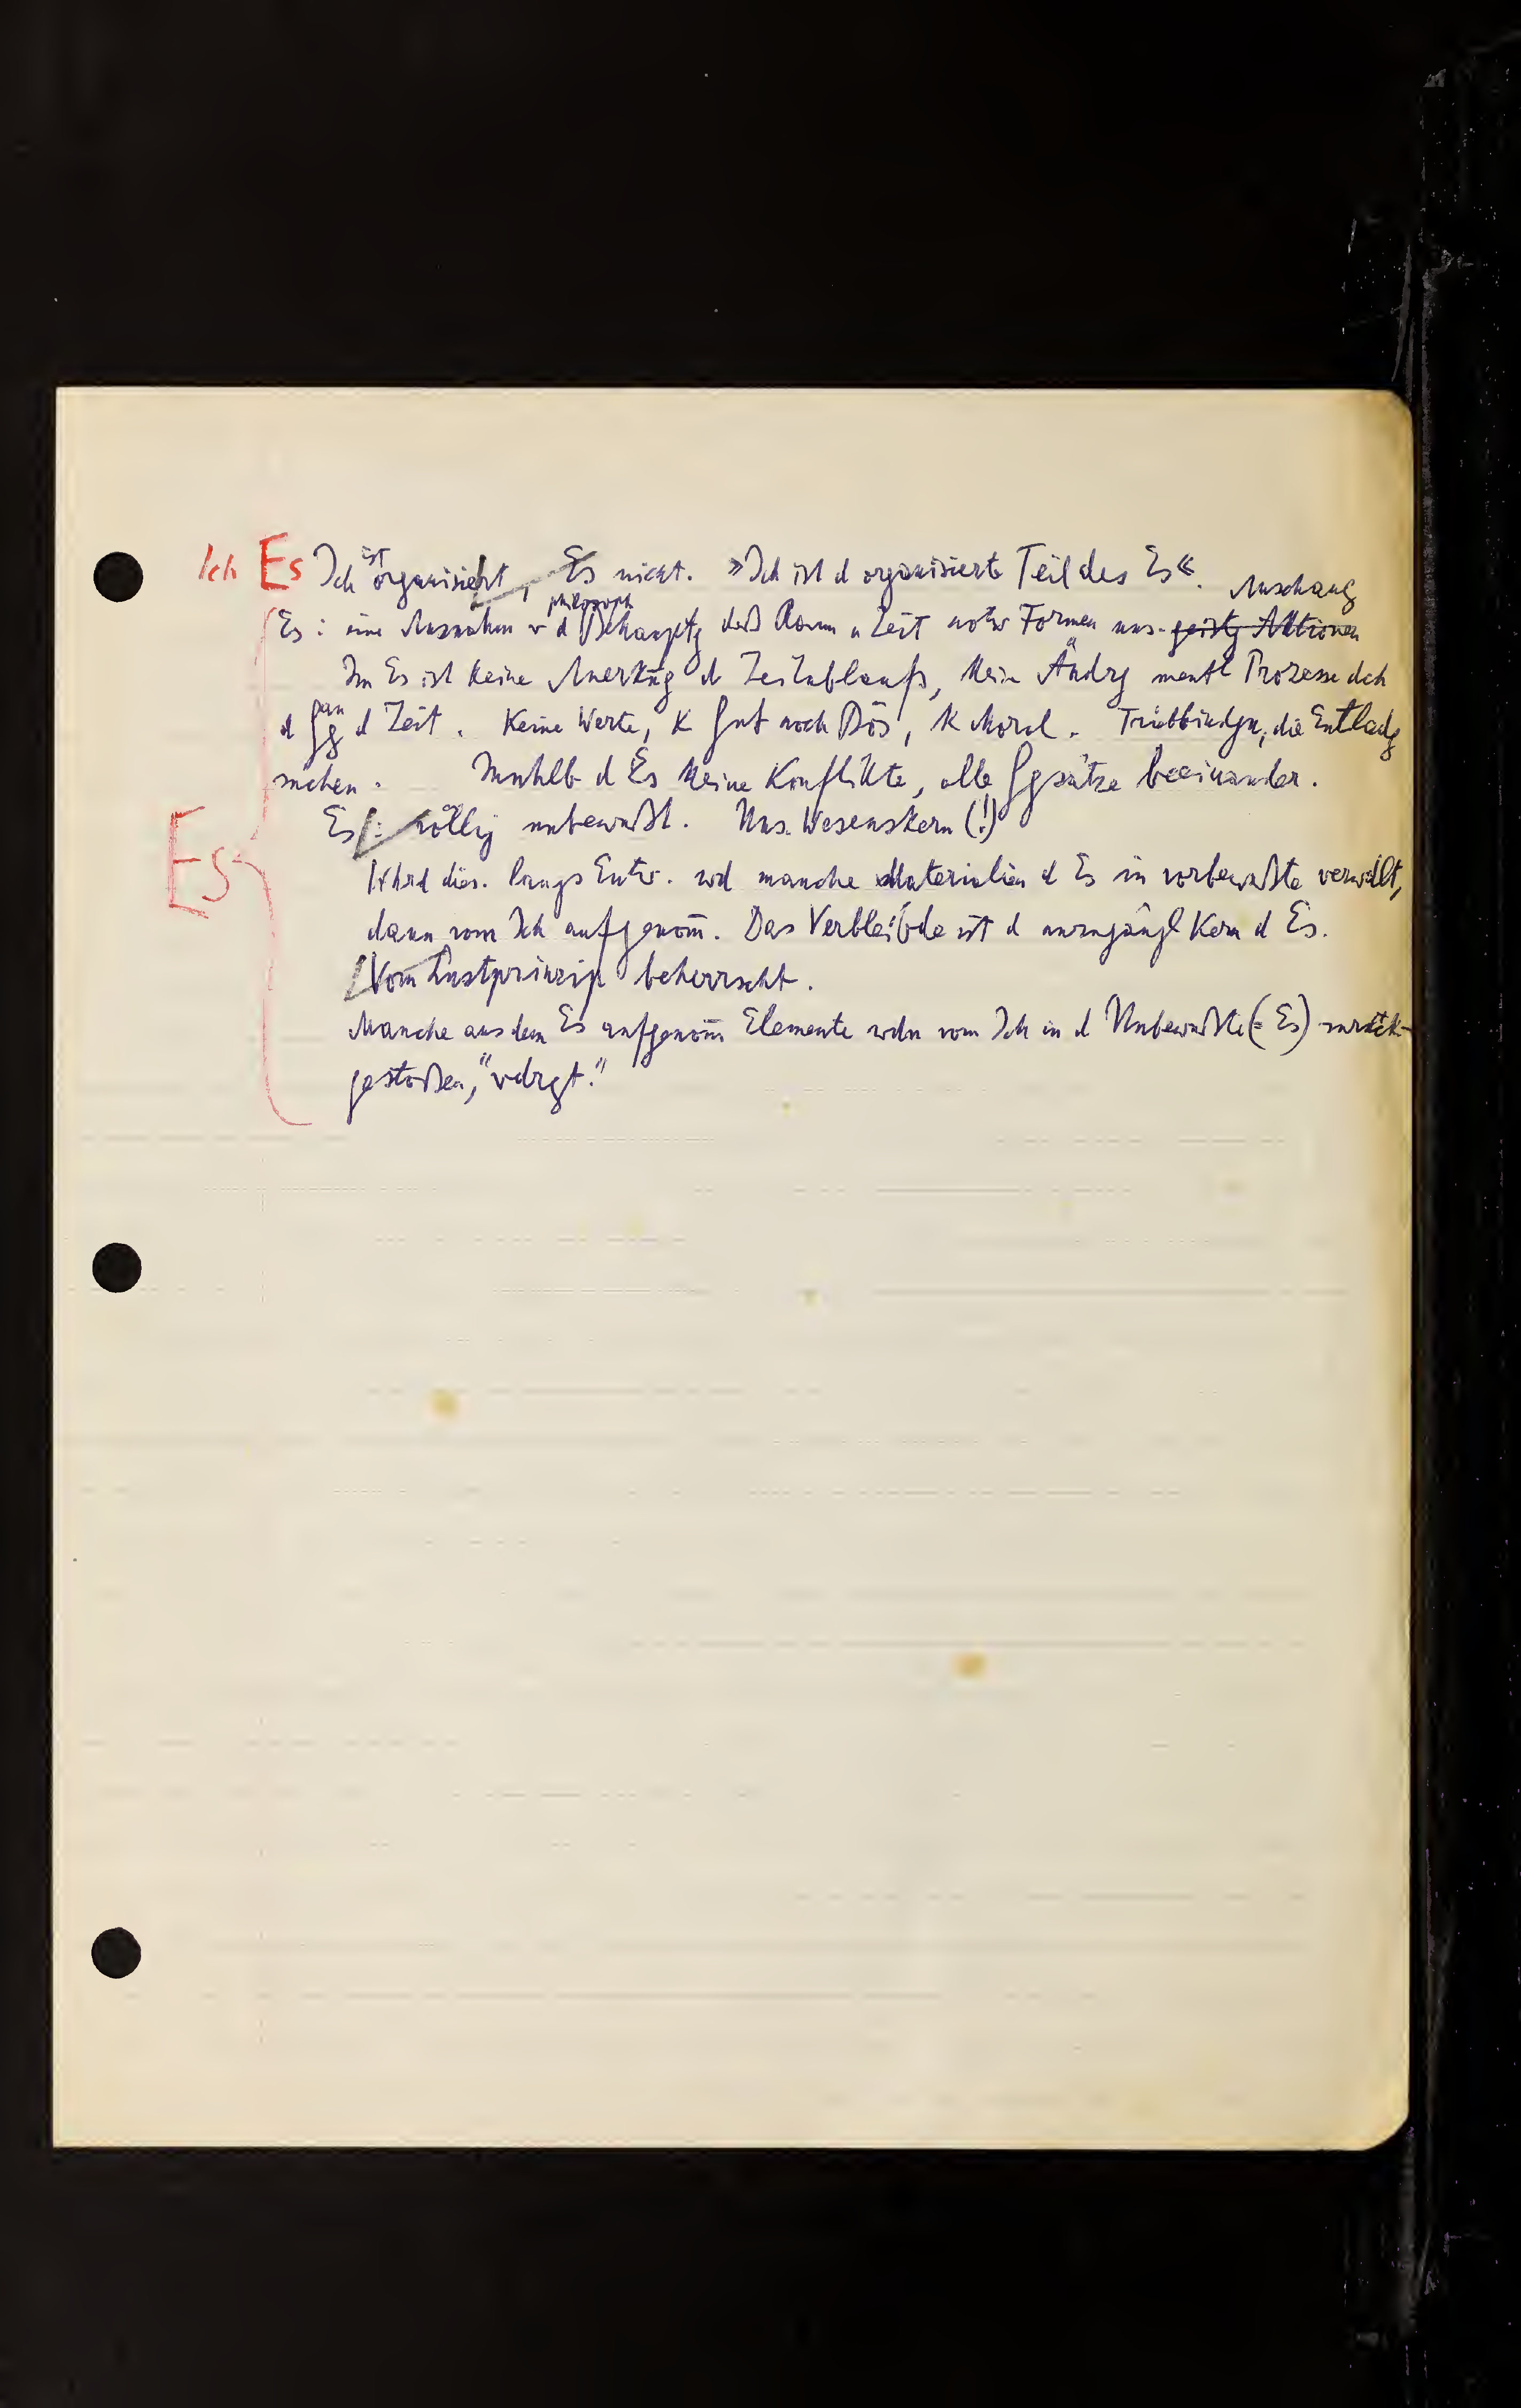 Ich Es Ich ist organisiert, Es nicht. »Ich ist d organisierte Teil des Es«.
Anschaug
philosoph
Es: eine Ausnahm v d Behauptg daß Raum u Zeit notw Formen uns. geistg Aktionen
Im Es ist keine Anerkng d Zeitablaufs, kein Ändrg mentl Prozesse dch
d Zeit. Keine Werte, K Gut noch Bös, K Moral. Triebbindgn, die Entladg
suchen. Innhlb d Es keine Konflikte, alle Ggsätze beeinander.
Es: völlig unbewußt. Uns. Wesenskern (!)
Es
Whrd dies. langs Entw. wd manche Materialien d Es in vorbewußte verwdlt,
dann vom Ich aufgenom̅. Das Verbleibde ist d Kern d Es.
Vom Lustprinzip beherrscht.
Manche aus dem Es aufgenom̅ Elemente wdn vom Ich in d Unbewußte (= Es) zurück-
gestoßen, "vdrgt."